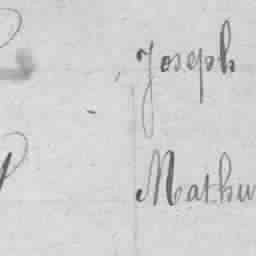 Joseph
Mathu